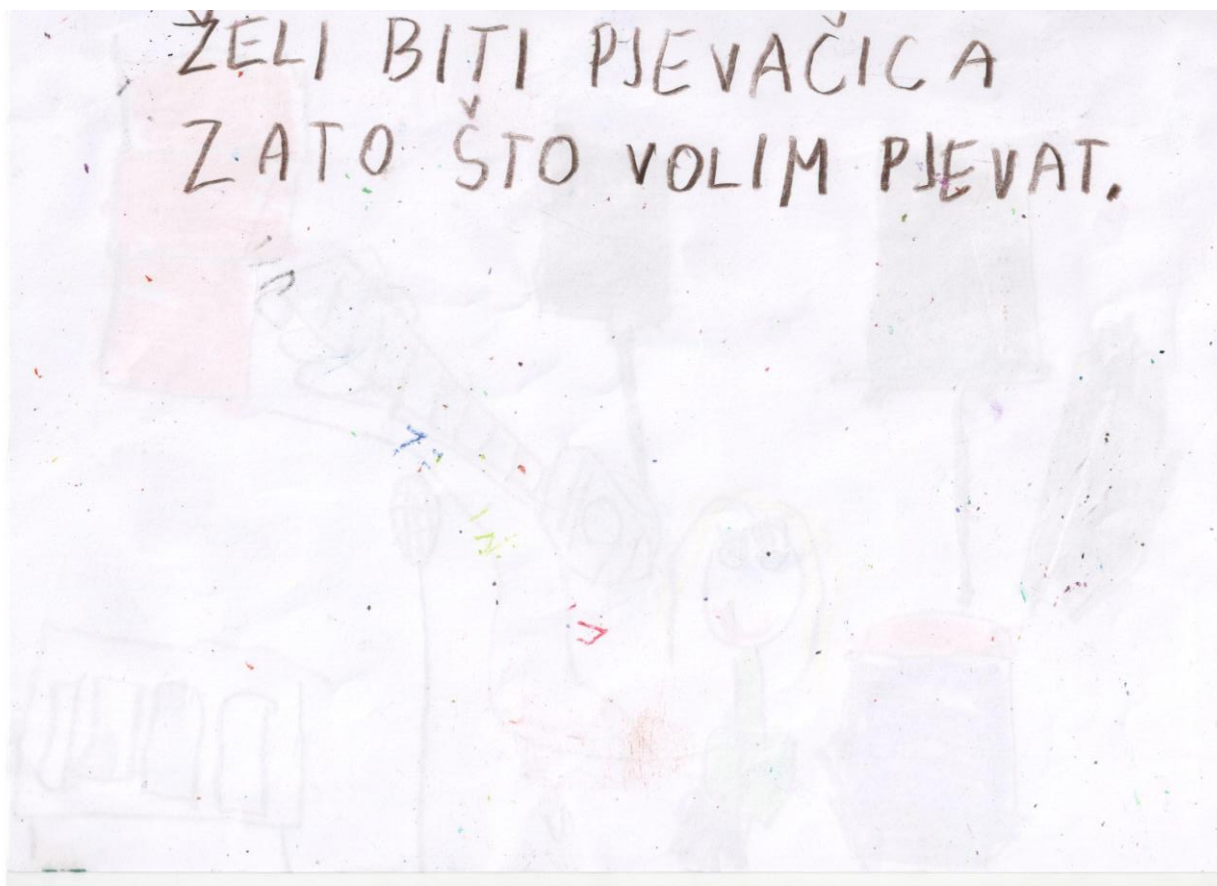 ŽELI BITI PJEVAČICA
ZATO ŠTO VOLIM PJEVAT.